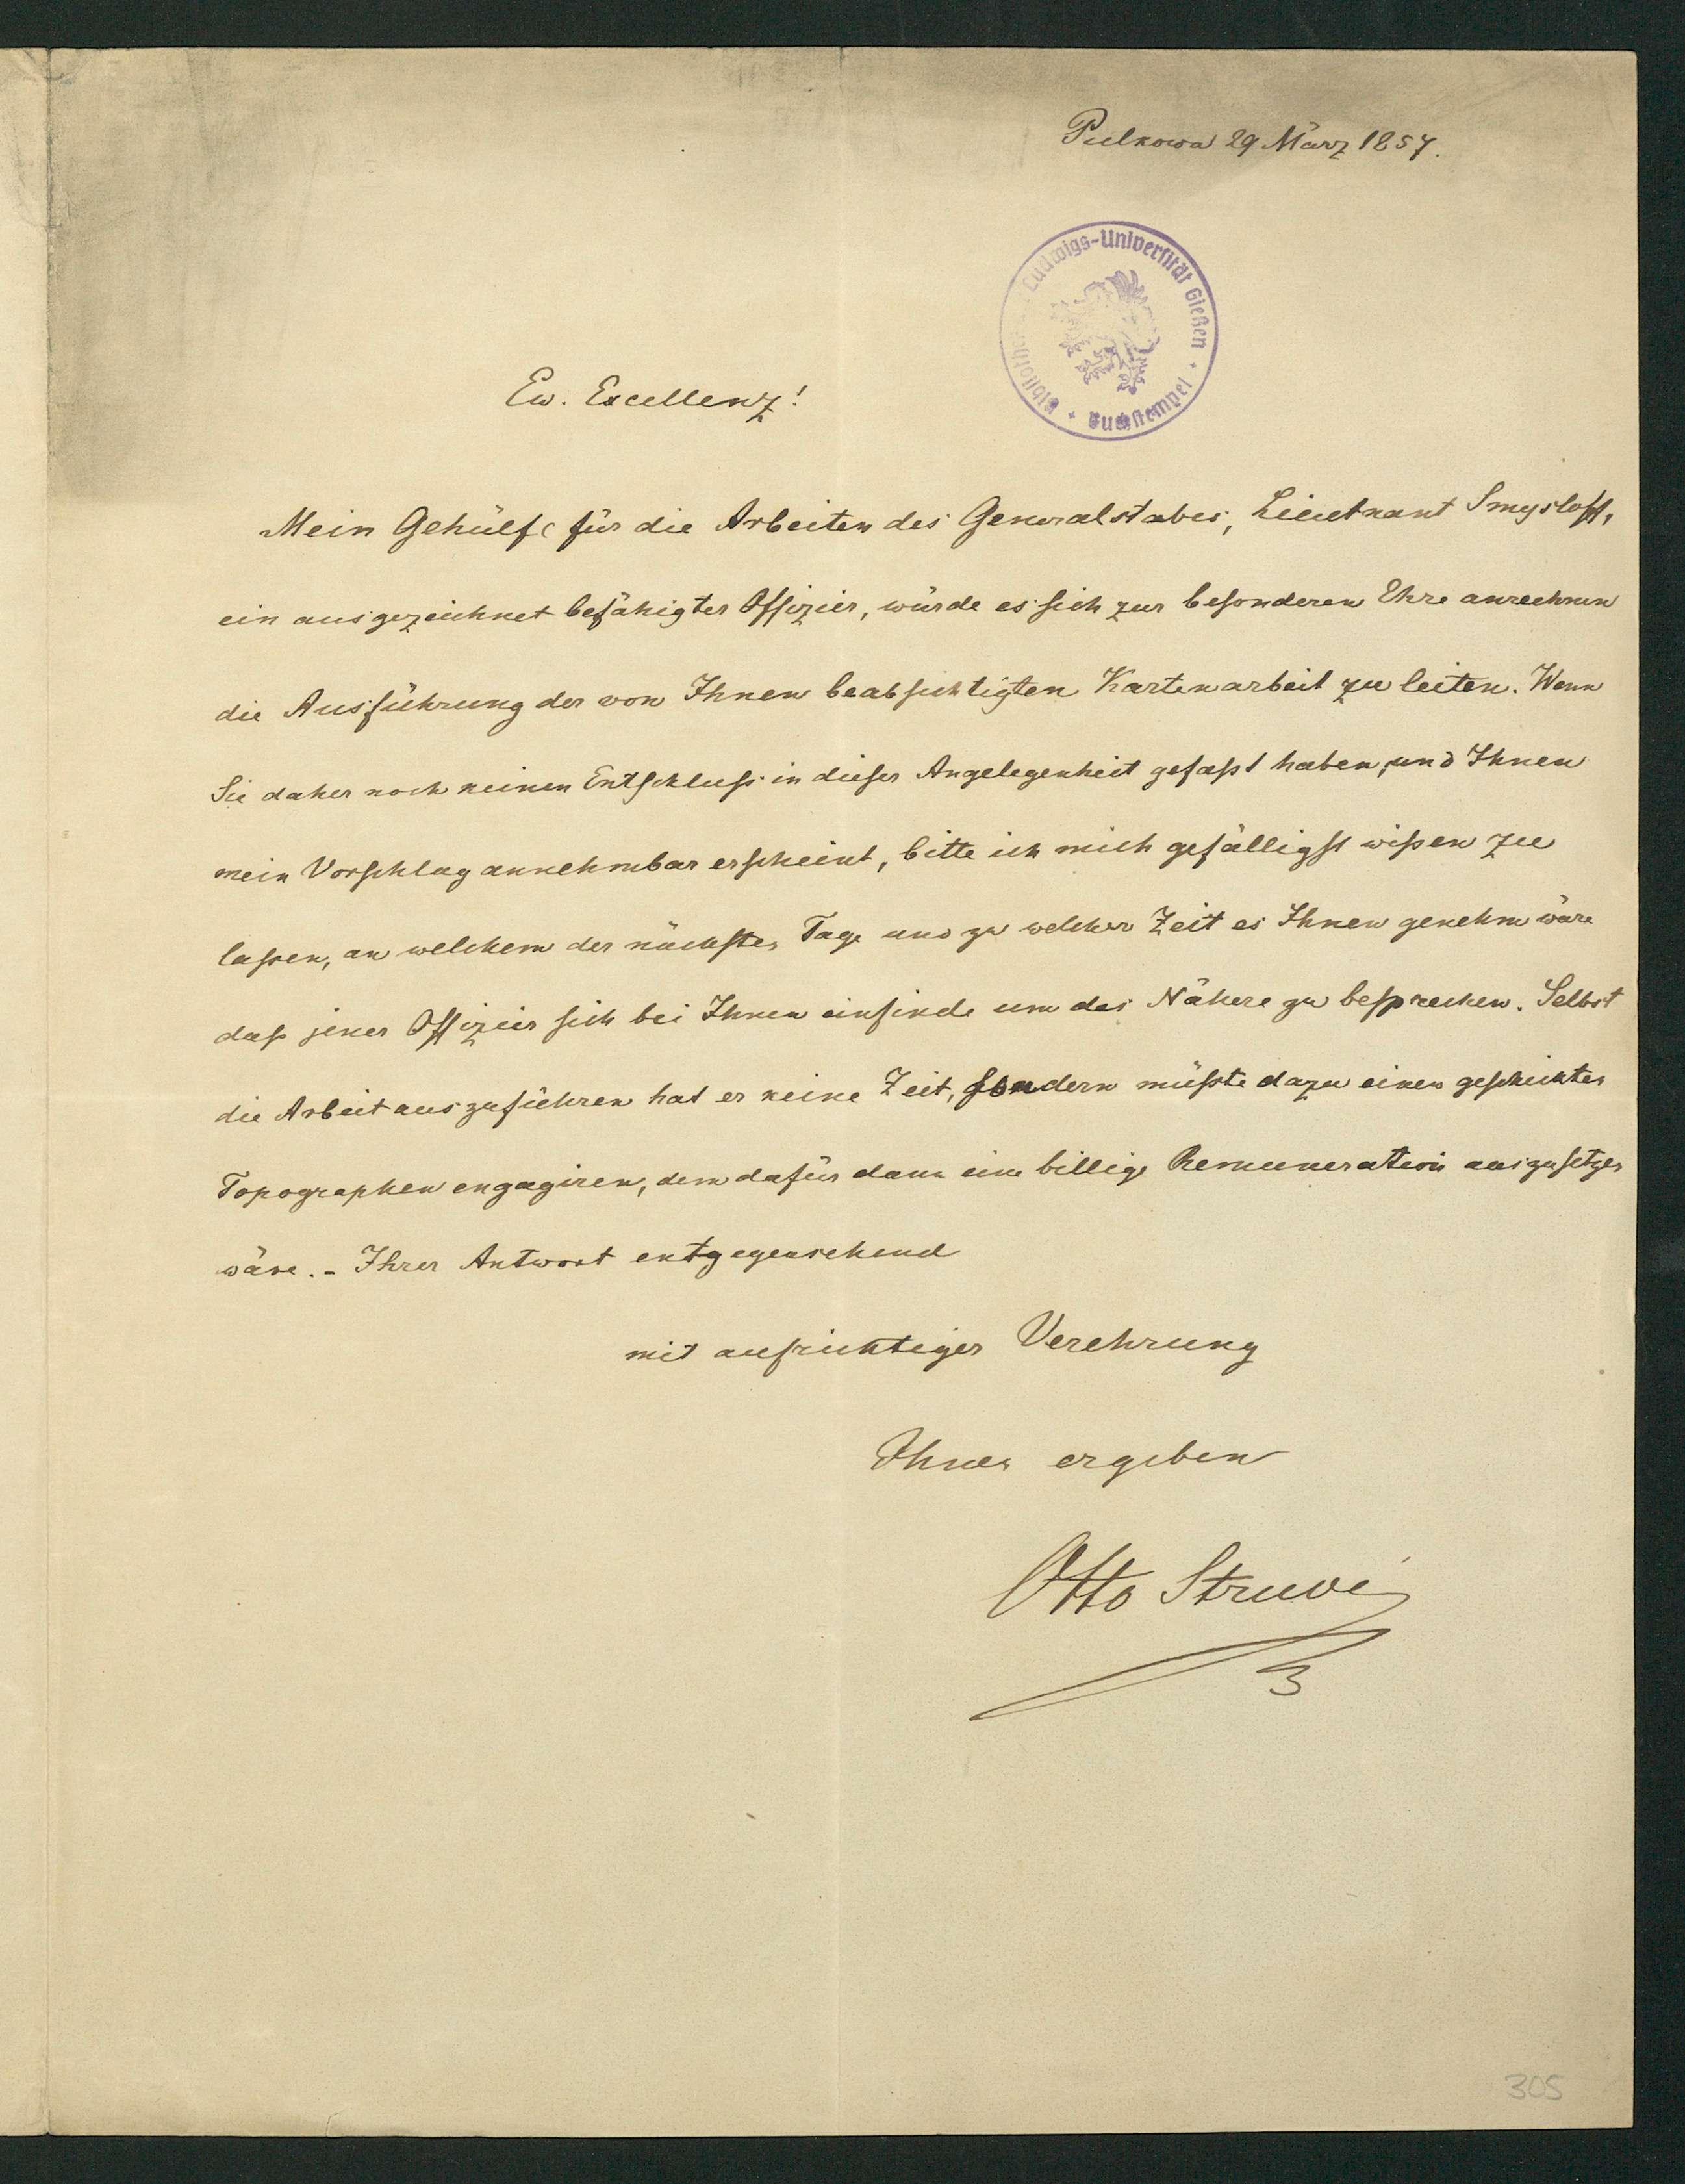 Pulkowa 29 März 1857.
Bibliothek Ludwigs-Universität Gießen
Buchstempel
Ew. Excellenz!
Mein Gehülfe für die Arbeiten des Generalstabes, Lieutnant Smysloff,
ein ausgezeichnet befähigter Offizier, würde es sich zur besonderen Ehre anrechnen
die Ausführung der von Ihnen beabsichtigten Kartenarbeit zu leiten. Wenn
Sie daher noch keinen Entschluss in dieser Angelegenheit gefaßt haben, und Ihnen
mein Vorschlag annehmbar erscheint, bitte ich mich gefälligst wißen zu
laßen, an welchem der nächsten Tage und zu welcher Zeit es Ihnen genehm wäre
daß jener Offizier sich bei Ihnen einfinde um das Nähere zu besprechen. Selbst
die Arbeit auszuführen hat er keine Zeit, sondern müßte dazu einen geschickten
Topographen engagiren, dem dafür dann eine billige Remuneration auszusetzen
wäre. - Ihrer Antwort entgegensehend
mit aufrichtiger Verehrung
Ihnen ergeben
Otto Struve
305